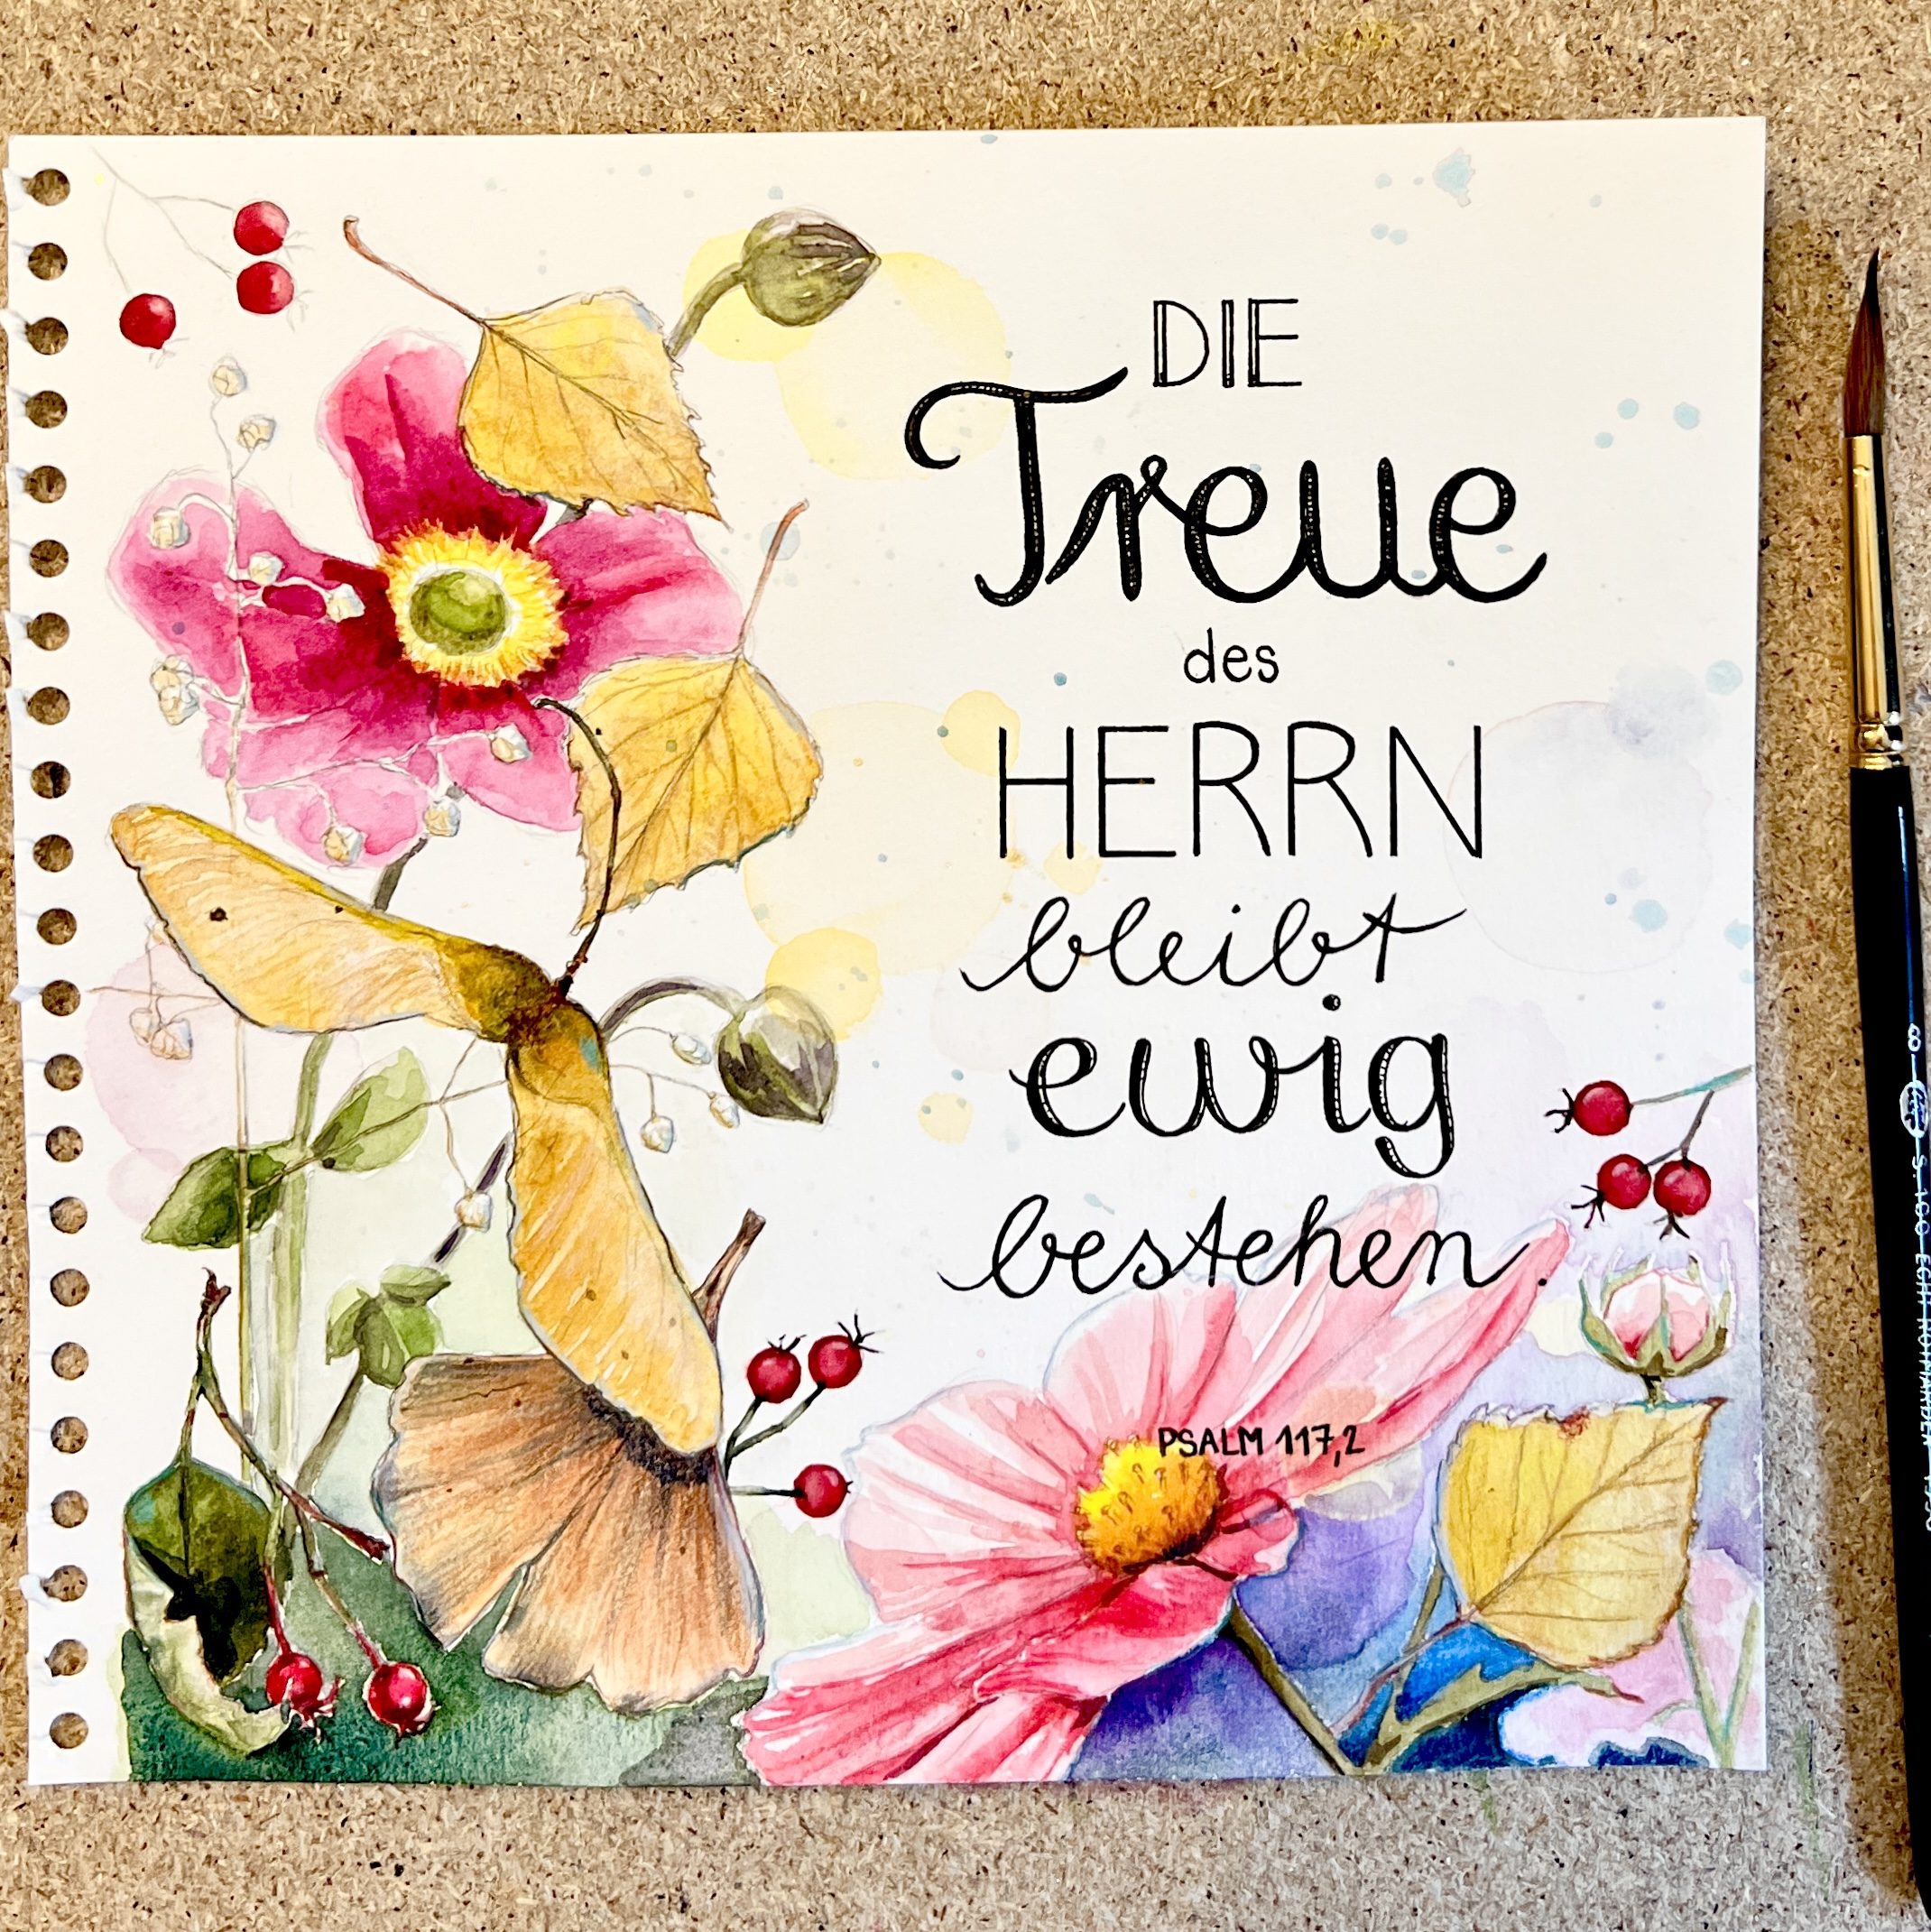 DIE
Treue
des
HERRN
bleibt
ewig
bestehen.
PSALM 117,2
8